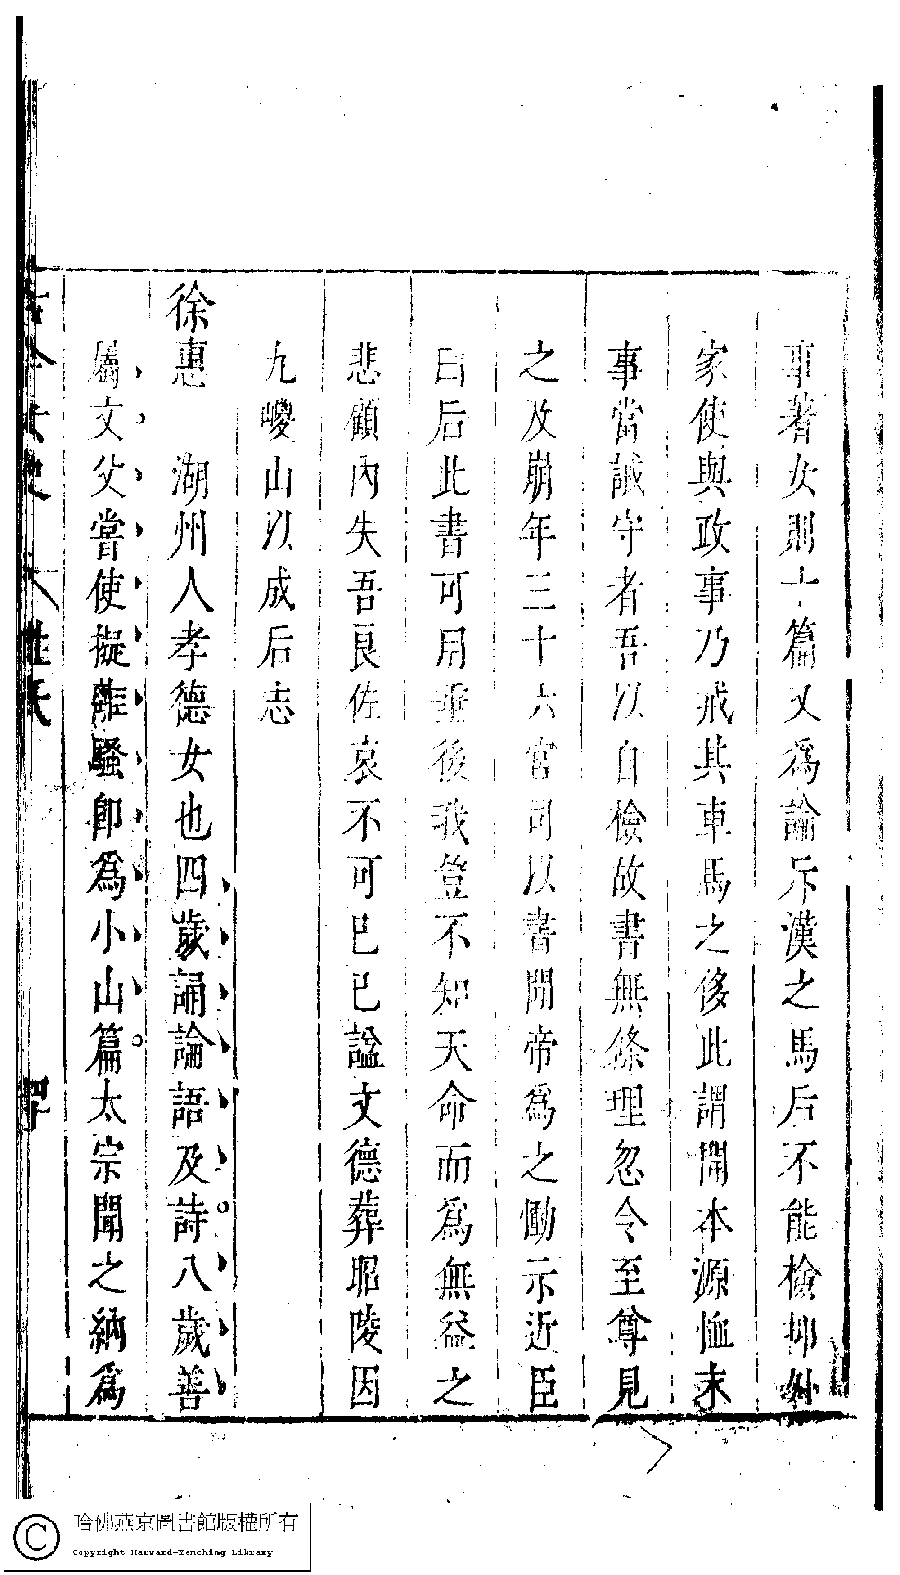 事著女則十篇又爲論斥漢之馬后不能檢抑外
家使與政事乃戒其車馬之侈此謂開本源恤末
事當誡守者吾以自檢故書無條理忽令至尊見
之及崩年三十六宮司以書聞帝爲之慟示近臣
曰后此書可用垂後我豈不知天命而爲無益之
悲顧內失吾良佐哀不可已已諡文德葬昭陵因
九嵕山以成后志
徐惠　湖州人孝德女也四歲誦論語及詩八歲善
屬文父嘗使擬離騷卽爲小山篇太宗聞之納爲
古今女史 姓氏
哈佛燕京圖書館版權所有
Copyright Harvard-Yenching Library